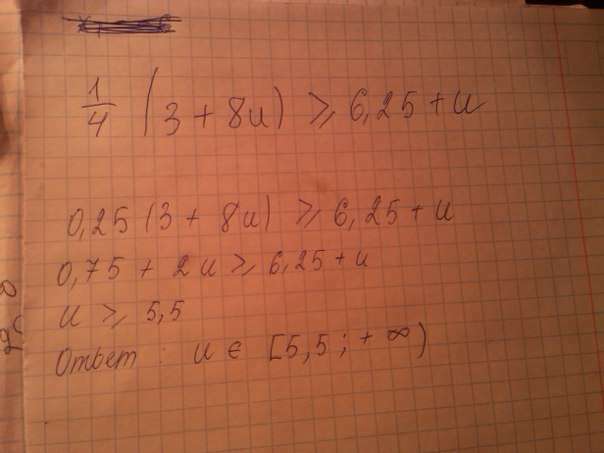 1/4 (3 + 8u) ⩾ 6,25 + u
0,25 (3 + 8u) ⩾ 6,25 + u
0,75 + 2u ⩾ 6,25 + u
u ⩾ 5,5
Ответ : u ∈ [5,5 ; + ∞)